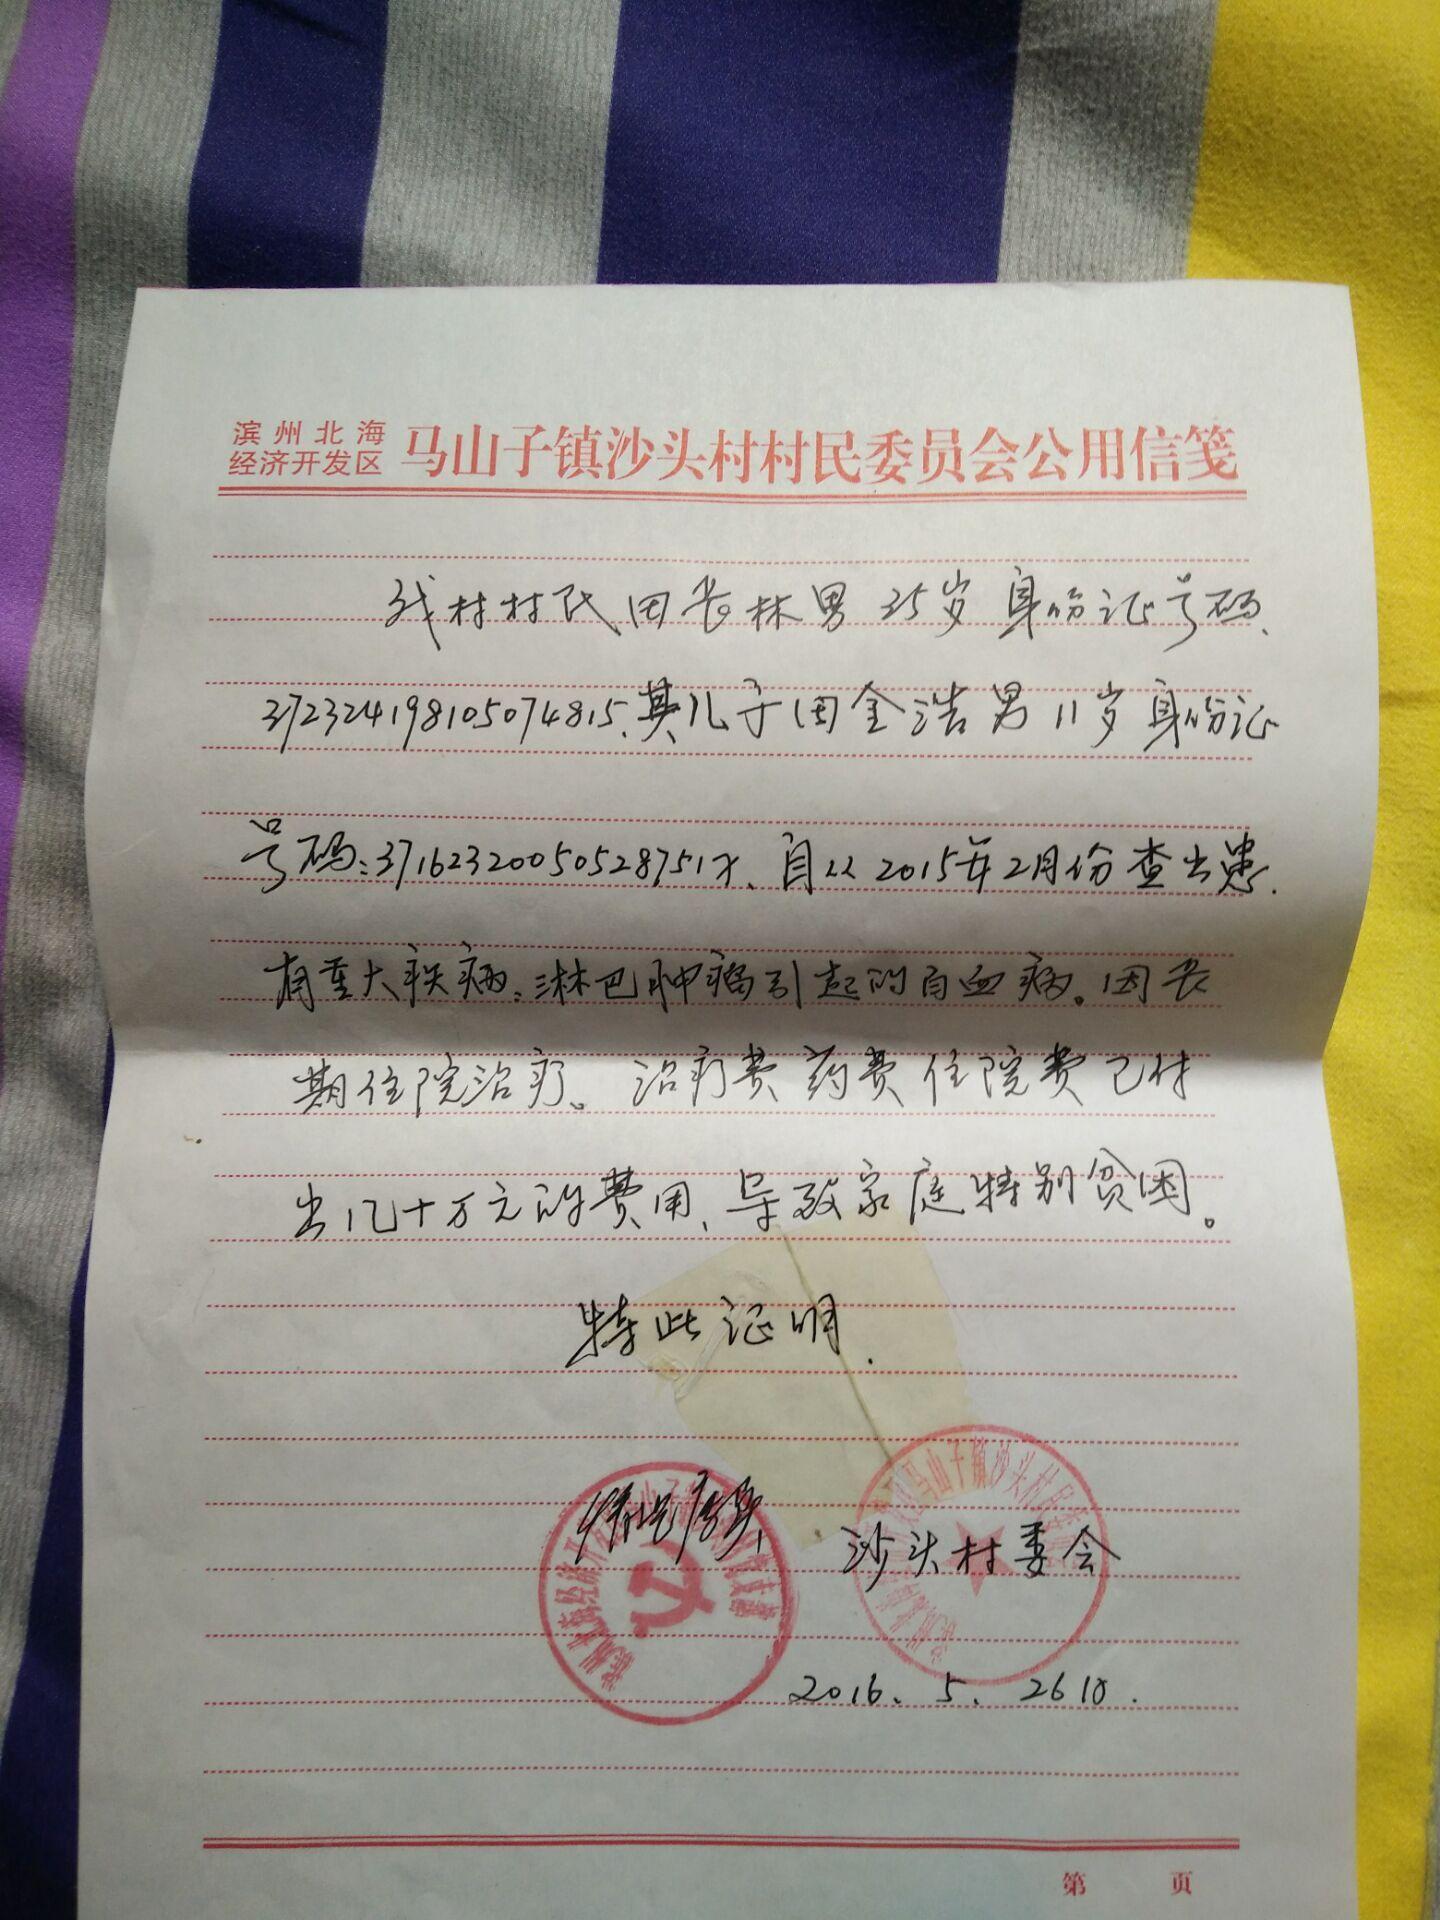 滨州北海
经济开发区 马山子镇沙头村村民委员会公用信笺
我村村民田长林男35岁身份证号码、
372324198105074815、其儿子田金浩男11岁身份证
号码:37162320050528751x、自从2015年2月份查出患
有重大疾病:淋巴肿瘤引起的白血病。因长
期住院治疗。治疗费药费住院费已付
出几十万元的费用、导致家庭特别贫困。
特此证明.
情况属实
沙头村委会
2016.5.26日.
第 页